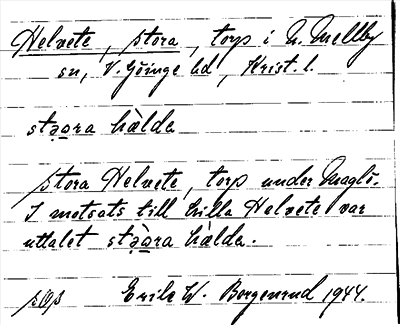 Helvete, stora, torp i N. Mellby
sn, V. Göinge hd, Krist. l.
stǫara hàlda
stora Helvete, torp under Maglö.
I motsats till Lilla Helvete var
uttalet stǫara hàlda.
Erik W. Borgenrud 1944.